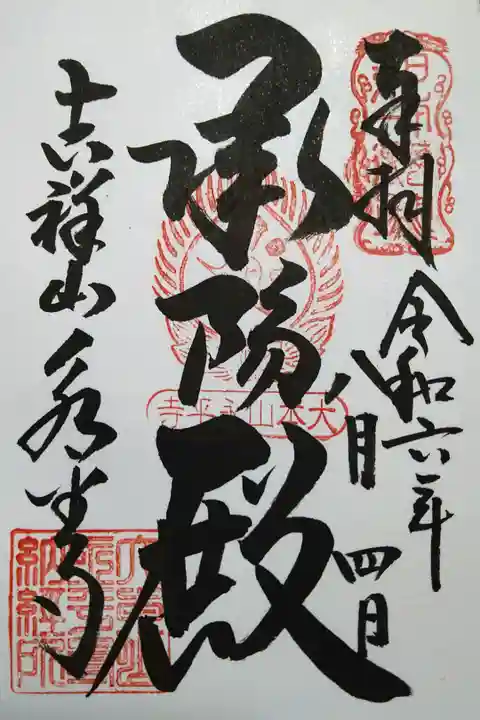 奉拝
令和六年
八月
四日
承陽殿
大本山永平寺
吉祥山永平寺
納経所